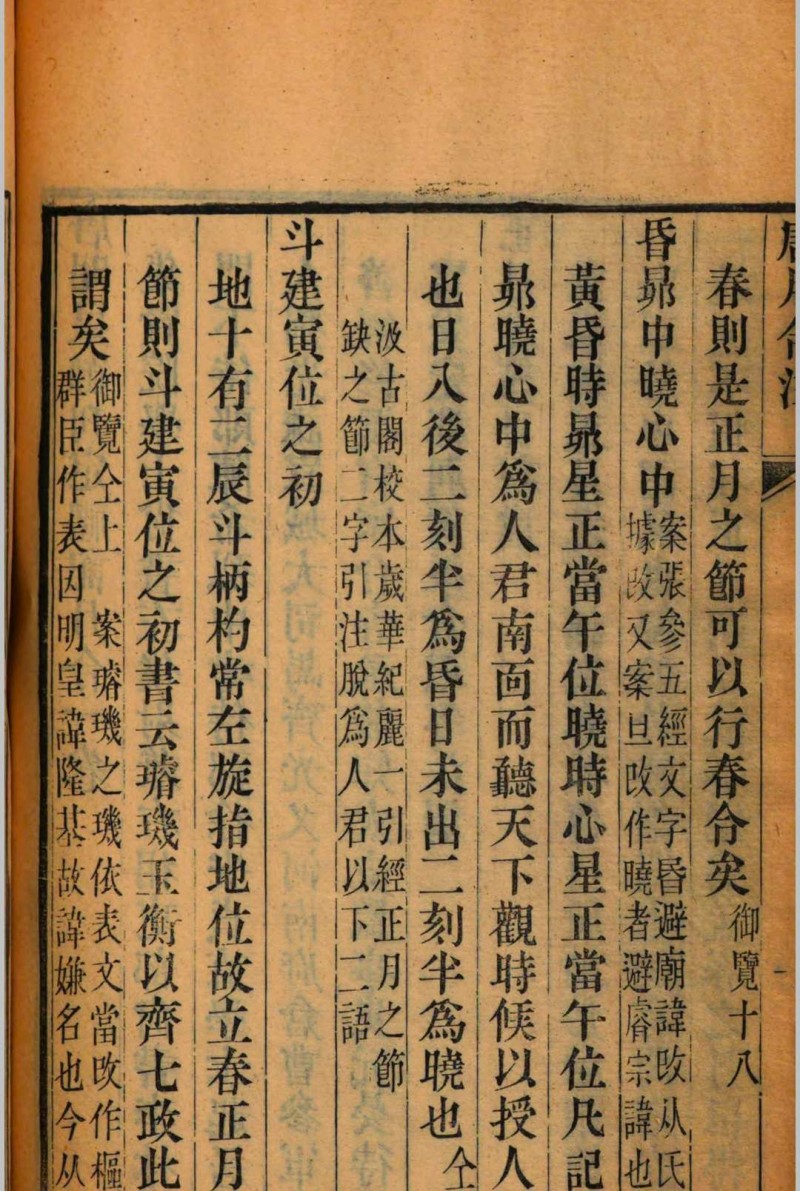 唐月令注
春則是正月之節可以行春令矣御覽十八
昏昴中曉心中案張參五經文字昏避廟諱改从氏
據改又案旦改作曉者避睿宗諱也
黃昏時昴星正當午位曉時心星正當午位凡記
昴曉心中爲人君南面而聽天下觀時候以授人
也日入後二刻半爲昏日未出二刻半爲曉也仝
汲古閣校本歲華紀麗一引經正月之節
缺之節二字引注脫爲人君以下二語
斗建寅位之初
地十有二辰斗柄杓常左旋指地位故立春正月
節則斗建寅位之初書云璿璣玉衡以齊七政此
謂矣御覽仝上 案璿璣之璣依表文當改作樞
群臣作表因明皇諱隆基故諱嫌名也今从